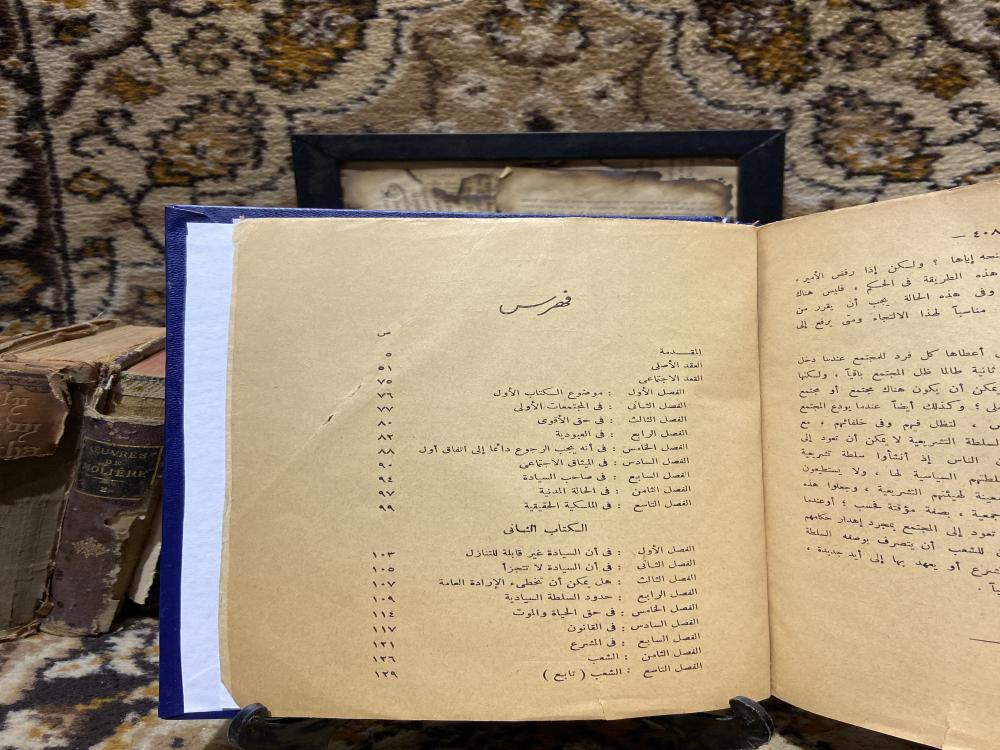 — ٤٠٨
نحه إياها ؟ ولكن إذا رفض الأمير ،
هذه الطريقة فى الحكم ، فليس هناك
وفى هذه الحالة يجب أن يقرر من
مناسباً لهذا الالتجاء ومتى يرفع إلى
أعطاها كل فرد للمجتمع عندما دخل
ثانية طالما ظل المجتمع باقياً ، ولكنها
يمكن أن يكون هناك مجتمع أو مجتمع
لى ؛ وكذلك أيضاً عندما يودع المجتمع
، لتظل فيهم وفى خلفائهم ، مع
السلطة التشريعية لا يمكن أن تعود إلى
الناس إذ أنشأوا سلطة تشريعية
سلطتهم السياسية لها ، ولا يستطيعون
معينة لهيئتهم التشريعية ، وجعلوا هذه
جمعية ، بصفة مؤقتة فحسب ؛ أوعندما
تعود إلى المجتمع بمجرد إهدار حكامهم
للشعب أن يتصرف بوصفه السلطة
شرع أو يعهد بها إلى أيد جديدة ،
فهرس
ص
المقدمة ٥
العقد الأصلى ٥١
القعد الاجتماعى ٧٥
الفصل الأول : موضوع الكتاب الأول ٧٦
الفصل الثانى : فى المجتمعات الأولى ٧٧
الفصل الثالث : فى حق الأقوى ٨٠
الفصل الرابع : فى العبودية ٨٢
الفصل الخامس : فى أنه يجب الرجوع دائما إلى اتفاق أول ٨٨
الفصل السادس : فى الميثاق الاجتماعى ٩٠
الفصل السابع : فى صاحب السيادة ٩٤
الفصل الثامن : فى الحالة المدنية ٩٧
الفصل التاسع : فى الملكية الحقيقية ٩٩
الكتاب الثانى
الفصل الأول : فى أن السيادة غير قابلة للتنازل ١٠٣
الفصل الثانى : فى أن السيادة لا تتجزأ ١٠٥
الفصل الثالث : هل يمكن أن تخطىء الإرادة العامة ١٠٧
الفصل الرابع : حدود السلطة السيادية ١٠٩
الفصل الخامس : فى حق الحياة والموت ١١٤
الفصل السادس : فى القانون ١١٧
الفصل السابع : فى المشرع ١٢١
الفصل الثامن : الشعب ١٢٦
الفصل التاسع : الشعب ( تابع ) ١٢٩
ŒUVRES
DE
MOLIÈRE
2